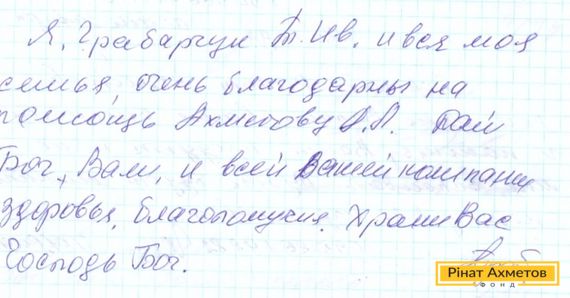 Я, Грабарчук Т. Ив. и вся моя
семья, очень благодарны на
помощь Ахметову Р.Л. Дай
Бог, Вам, и всей Вашей компании
здоровья, благополучия. Храни Вас
Господь Бог.
Рінат Ахметов
ФОНД